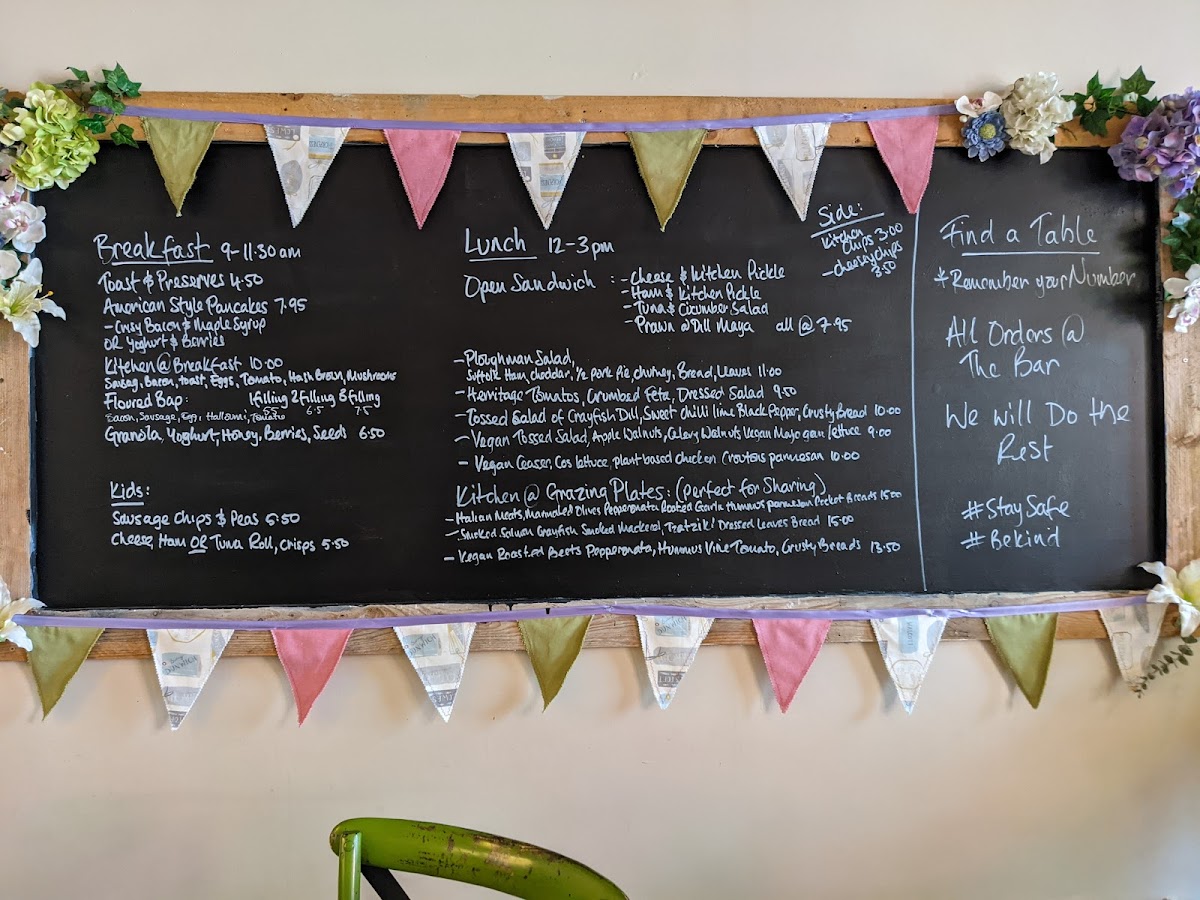 Breakfast 9-11.30am
Toast & Preserves 4.50
American Style Pancakes 7.95
- Crisy Bacon & Maple Syrup
OR Yoghurt & Berries
Kitchen @ Breakfast 10.00
Sausag, Bacon, toast, Eggs, Tomato, Hash Brown, Mushrooms
Floured Bap: 1 filling 2 filling 3 filling
Bacon, Sausage, Egg, Halloumi, Tomato 5.5 6.5 7.5
Granola, Yoghurt, Honey, Berries, Seeds 6.50
Kids:
Sausage Chips & Peas 5.50
Cheese, Ham OR Tuna Roll, Crisps 5.50
Lunch 12-3pm
Open Sandwich : - Cheese & Kitchen Pickle
- Ham & Kitchen Pickle
- Tuna & Cucumber Salad
- Prawn @ Dill Maya all @ 7.95
Side:
Kitchen
Chips 3.00
- Cheesy Chips
3.50
- Ploughman Salad,
Suffolk Ham, cheddar, 1/2 Pork Pie, chutney, Bread, Leaves 11.00
- Hermitage Tomatos, Crumbed Feta, Dressed Salad 9.50
- Tossed Salad of Crayfish Dill, Sweet chilli lime Black Pepper, Crusty Bread 10.00
- Vegan Tossed Salad, Apple Walnuts, Celery Walnuts Vegan Mayo gem lettuce 9.00
- Vegan Ceaser, Cos lettuce, plant based chicken Croutons parmesan 10.00
Kitchen @ Grazing Plates: (perfect for Sharing)
- Italian Meats, Marinated Olives Pepperonata Roasted Garlic Hummus parmesan Pocket Breads 15.00
- Smoked Salmon Crayfish Smoked Mackerel, Tzatziki Dressed Leaves Bread 15.00
- Vegan Roasted Beets Pepperonata, Hummus Vine Tomato, Crusty Breads 13.50
Find a Table
*Remember your Number
All Orders @
The Bar
We will Do the
Rest
#StaySafe
#Bekind